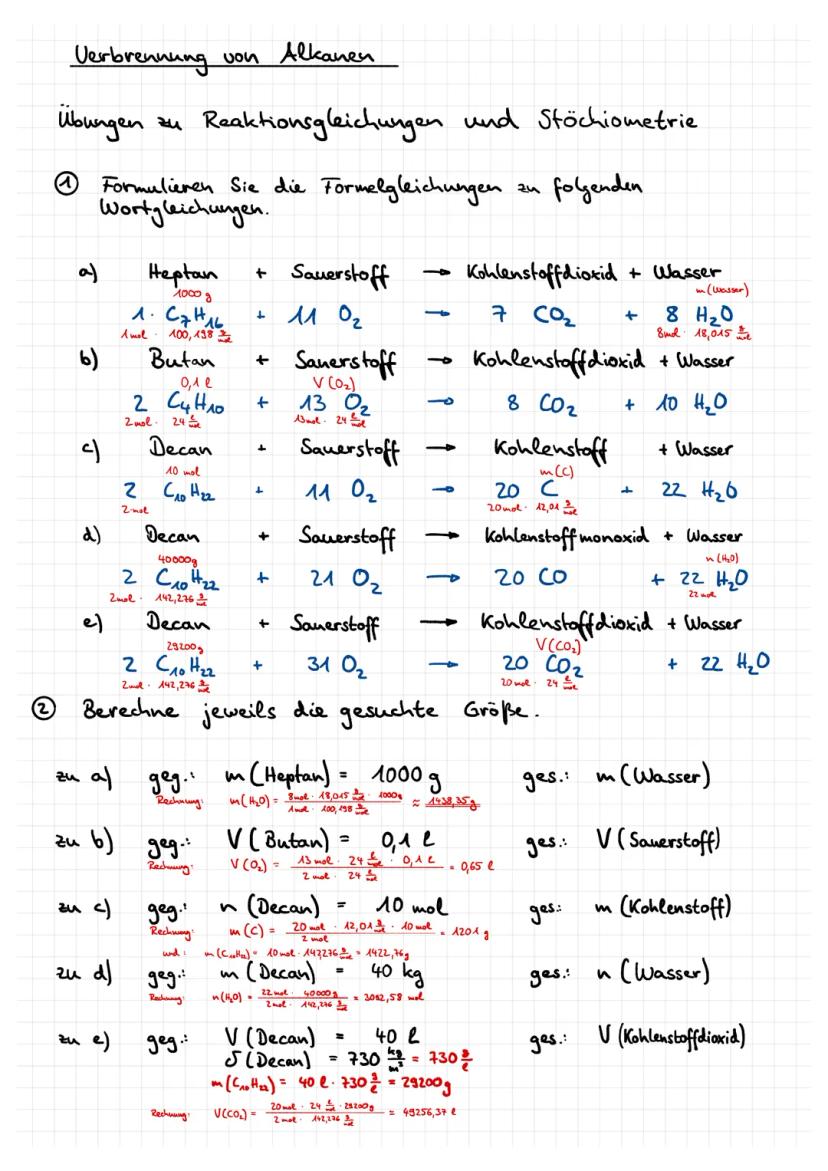 Verbrennung von Alkanen
Übungen zu Reaktionsgleichungen und Stöchiometrie
① Formulieren Sie die Formelgleichungen zu folgenden
Wortgleichungen.
a) Heptan + Sauerstoff → Kohlenstoffdioxid + Wasser
1000 g m(Wasser)
1· C₇H₁₆ + 11 O₂ → 7 CO₂ + 8 H₂O
1mol · 100,198 g/mol 8mol · 18,015 g/mol
b) Butan + Sauerstoff → Kohlenstoffdioxid + Wasser
0,1 l V(O₂)
2 C₄H₁₀ + 13 O₂ → 8 CO₂ + 10 H₂O
2mol · 24 l/mol 13mol · 24 l/mol
c) Decan + Sauerstoff → Kohlenstoff + Wasser
10 mol m(C)
2 C₁₀H₂₂ + 11 O₂ → 20 C + 22 H₂O
2mol 20mol · 12,01 g/mol
d) Decan + Sauerstoff → Kohlenstoffmonoxid + Wasser
40000g n(H₂O)
2 C₁₀H₂₂ + 21 O₂ → 20 CO + 22 H₂O
2mol · 142,276 g/mol 22mol
e) Decan + Sauerstoff → Kohlenstoffdioxid + Wasser
29200g V(CO₂)
2 C₁₀H₂₂ + 31 O₂ → 20 CO₂ + 22 H₂O
2mol · 142,276 g/mol 20mol · 24 l/mol
② Berechne jeweils die gesuchte Größe.
zu a) geg.: m(Heptan) = 1000 g ges.: m(Wasser)
Rechnung: m(H₂O) = (8mol · 18,015 g/mol · 1000g) / (1mol · 100,198 g/mol) ≈ 1438,35g
zu b) geg.: V(Butan) = 0,1 l ges.: V(Sauerstoff)
Rechnung: V(O₂) = (13 mol · 24 l/mol · 0,1 l) / (2 mol · 24 l/mol) = 0,65 l
zu c) geg.: n(Decan) = 10 mol ges.: m(Kohlenstoff)
Rechnung: m(C) = (20 mol · 12,01 g/mol · 10 mol) / (2 mol) = 1201 g
und: m(C₁₀H₂₂) = 10mol · 142,276 g/mol = 1422,76g
zu d) geg.: m(Decan) = 40 kg ges.: n(Wasser)
Rechnung: n(H₂O) = (22mol · 40000g) / (2mol · 142,276 g/mol) = 3092,58 mol
zu e) geg.: V(Decan) = 40 l ges.: V(Kohlenstoffdioxid)
δ(Decan) = 730 kg/m³ = 730 g/l
m(C₁₀H₂₂) = 40 l · 730 g/l = 29200g
Rechnung: V(CO₂) = (20mol · 24 l/mol · 29200g) / (2mol · 142,276 g/mol) = 49256,37 l